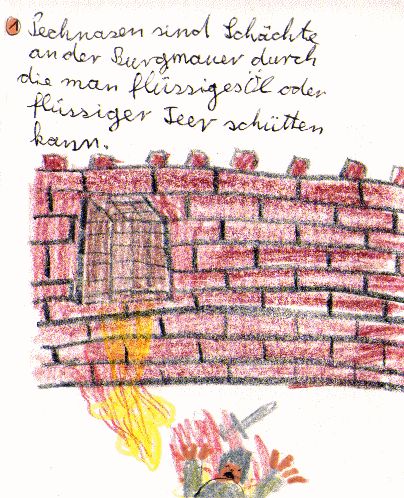 1 Pechnasen sind Schächte
an der Burgmauer durch
die man flüssiges Öl oder
flüssiger Teer schütten
kann.